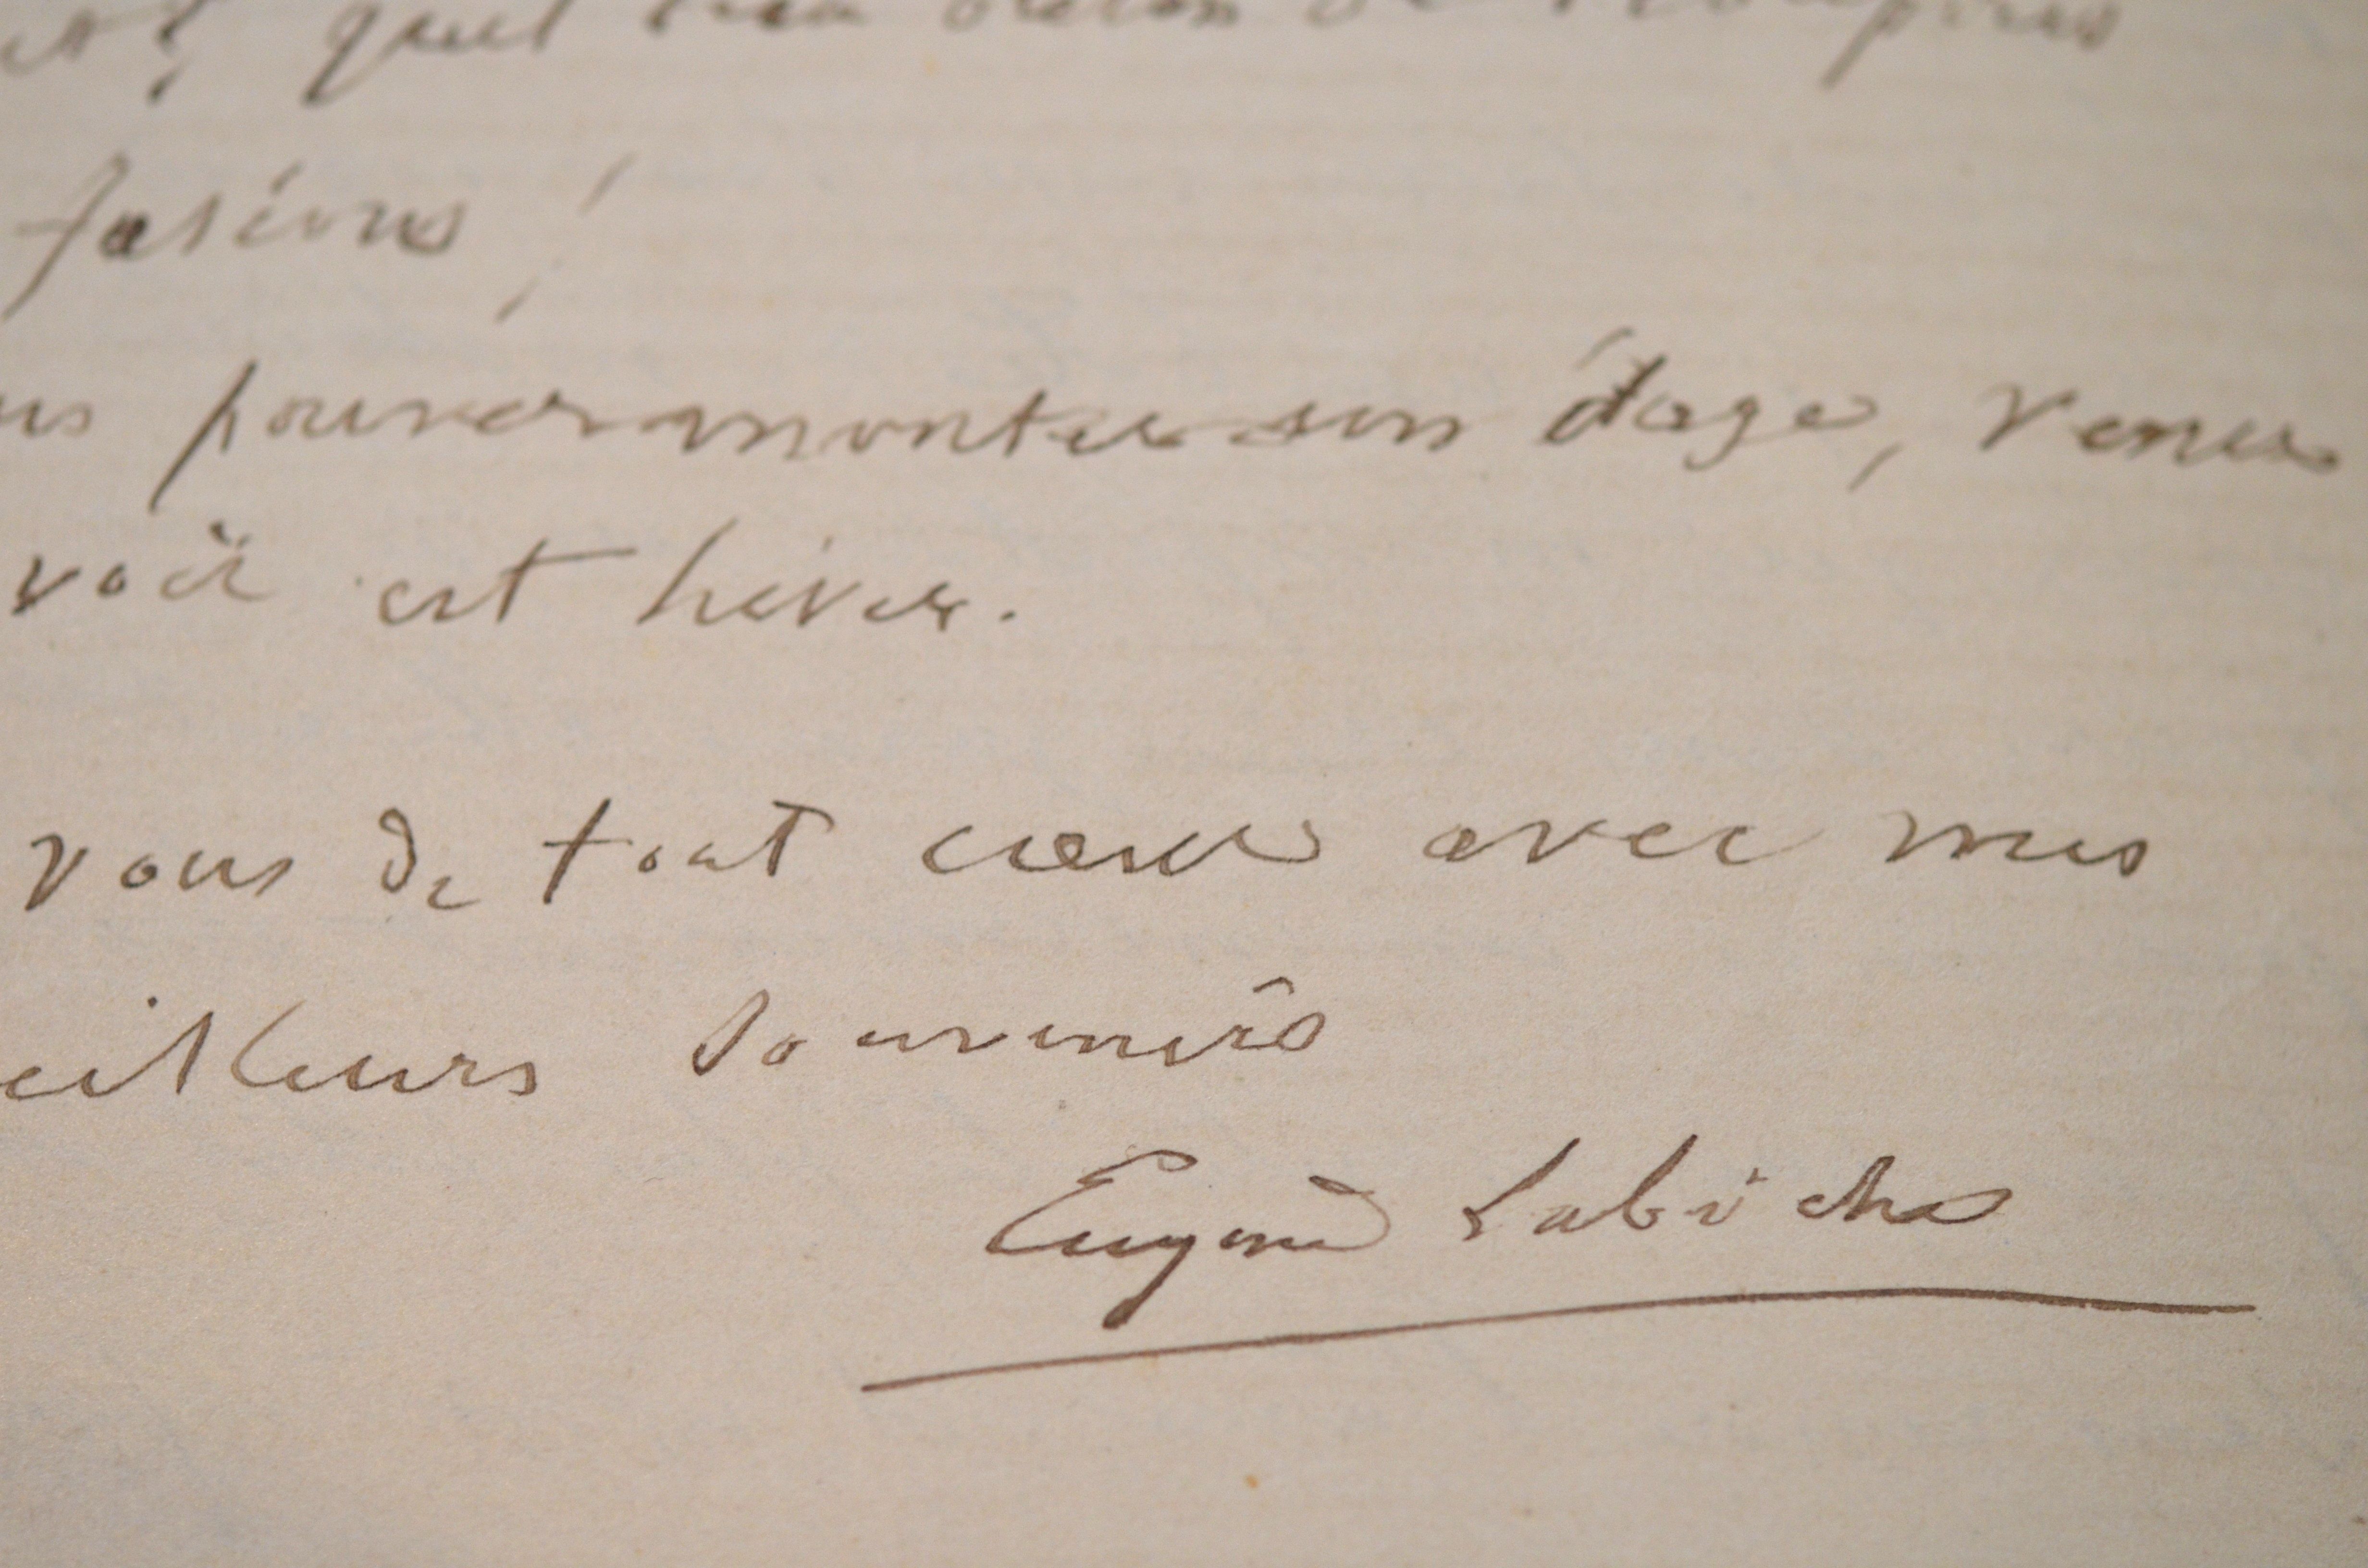 quel
fasions !
pouvez monter un étage, venez
voir cet hiver.
vous de tout coeur avec mes
eilleurs souvenirs
Eugene Labiche